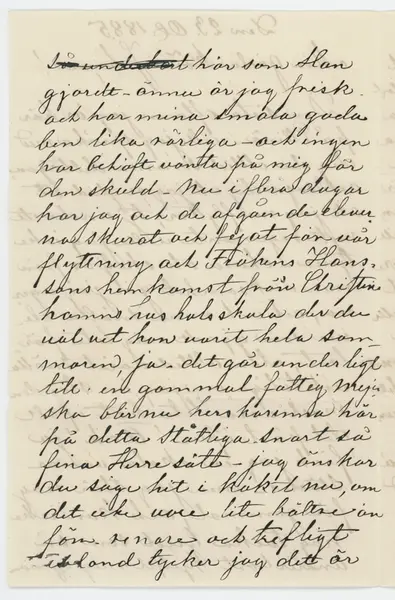 så underbart har som Han
gjordt – ännu är jag frisk.
och har mina smala goda
ben lika rörliga – och ingen
har behöft vänta på mig för
den skuld – Nu i flera dagar
har jag och de afgående elever
na skurat och fejat för vår
flyttning och Frökens Hans-
sons hemkomst från Christine
hamns hushålsskola der du
väl vet hon varit hela som-
maren, ja. det går underligt
till. en gammal fattig
ska bli nu herskarinna här
på detta Ståtliga snart så
fina Herre säte – jag önskar
du såge hit i Köket nu, om
det icke vore lite bättre än
förr. renare och trefligt
ibland tycker jag det är